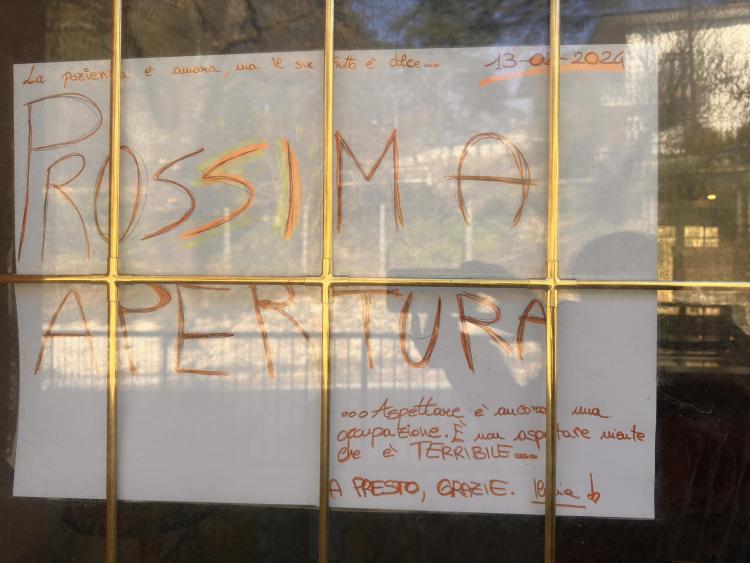 La pazienza è amara, ma il suo frutto è dolce...
13-04-2024
PROSSIMA
APERTURA
...Aspettare è ancora una
occupazione. È non aspettare niente
che è TERRIBILE...
A PRESTO, GRAZIE.